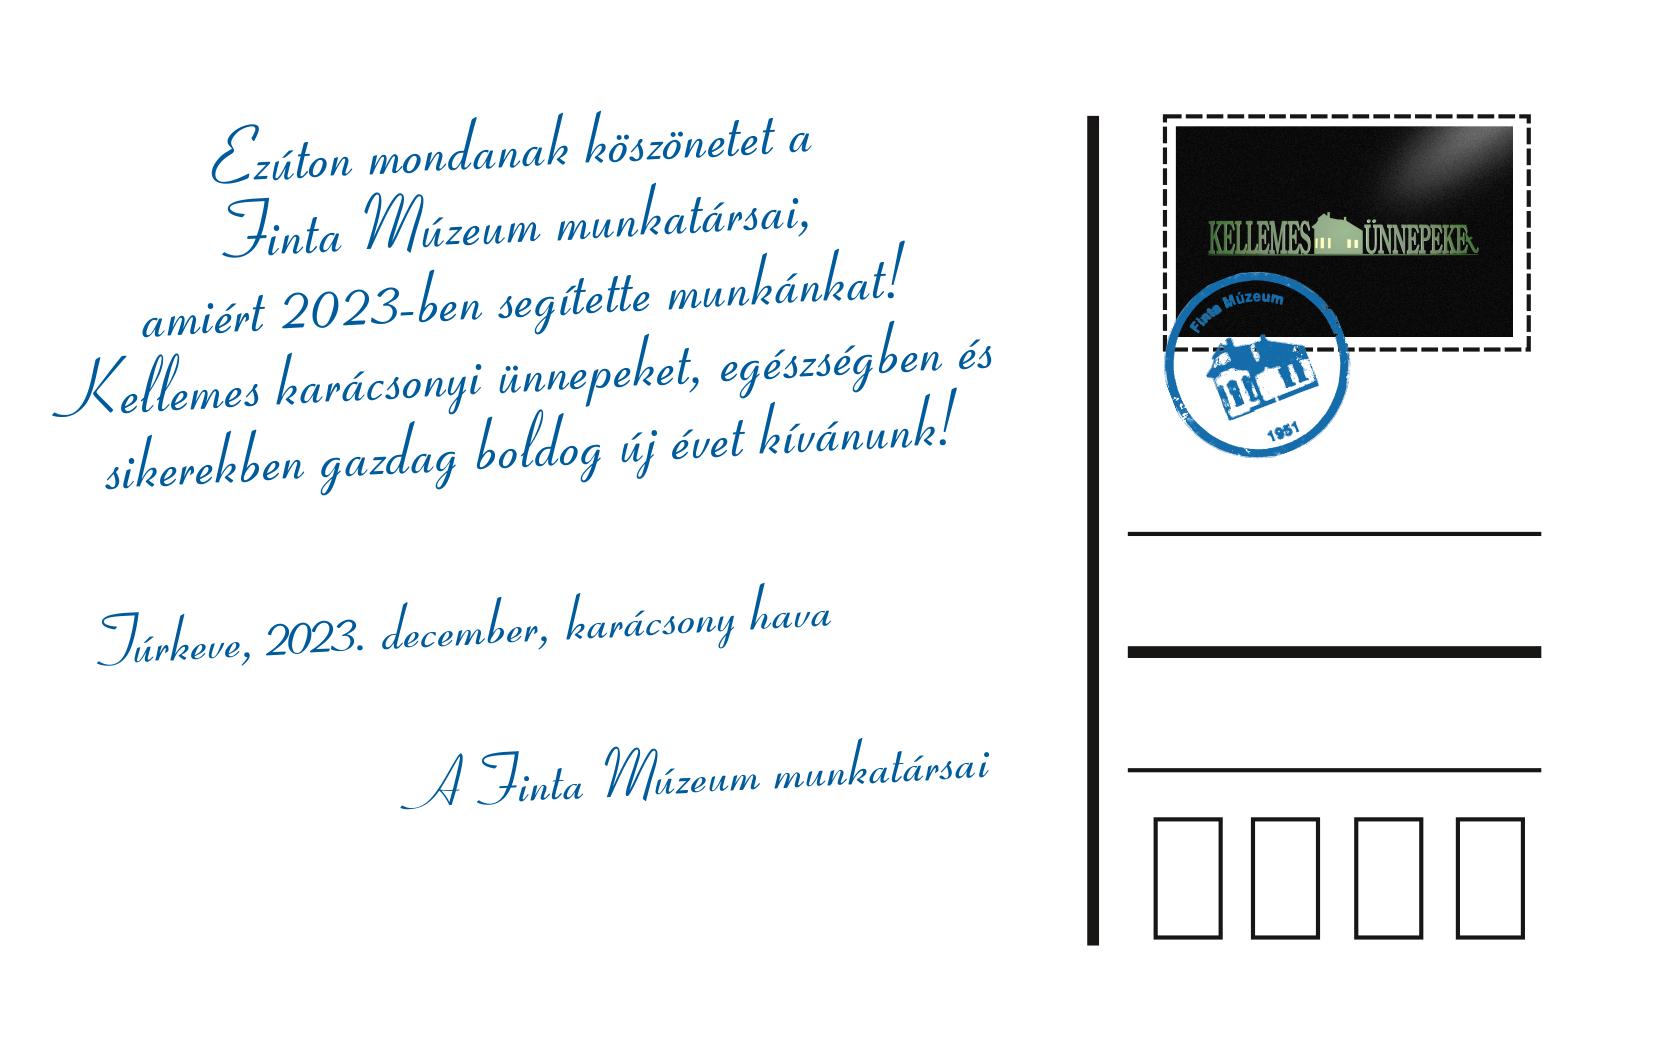 Ezúton mondanak köszönetet a
Finta Múzeum munkatársai,
amiért 2023-ben segítette munkánkat!
Kellemes karácsonyi ünnepeket, egészségben és
sikerekben gazdag boldog új évet kívánunk!
Túrkeve, 2023. december, karácsony hava
A Finta Múzeum munkatársai
KELLEMES ÜNNEPEKET
Finta Múzeum
1951